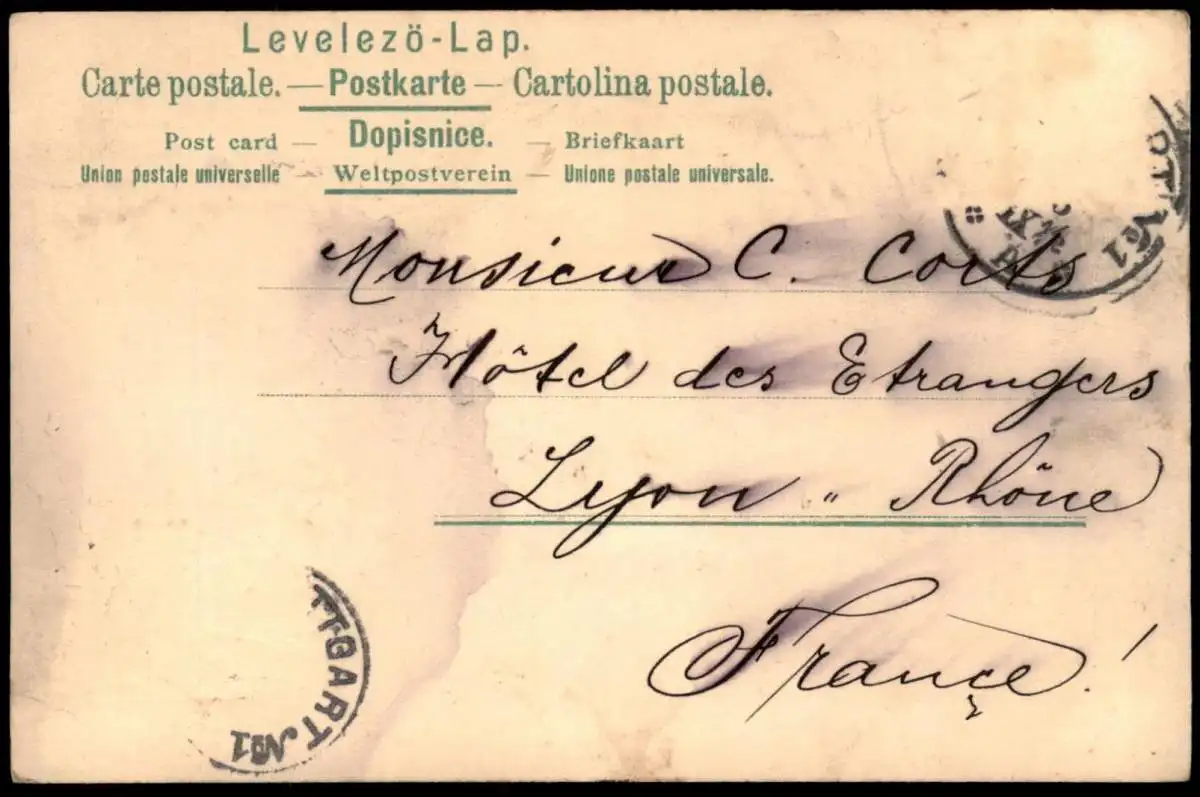 Levelezö-Lap.
Carte postale. — Postkarte — Cartolina postale.
Post card — Dopisnice. — Briefkaart
Union postale universelle — Weltpostverein — Unione postale universale.
Monsieur C. Corts
Hôtel des Etrangers
Lyon „ Rhône
France!
TTGART No 1
No 1